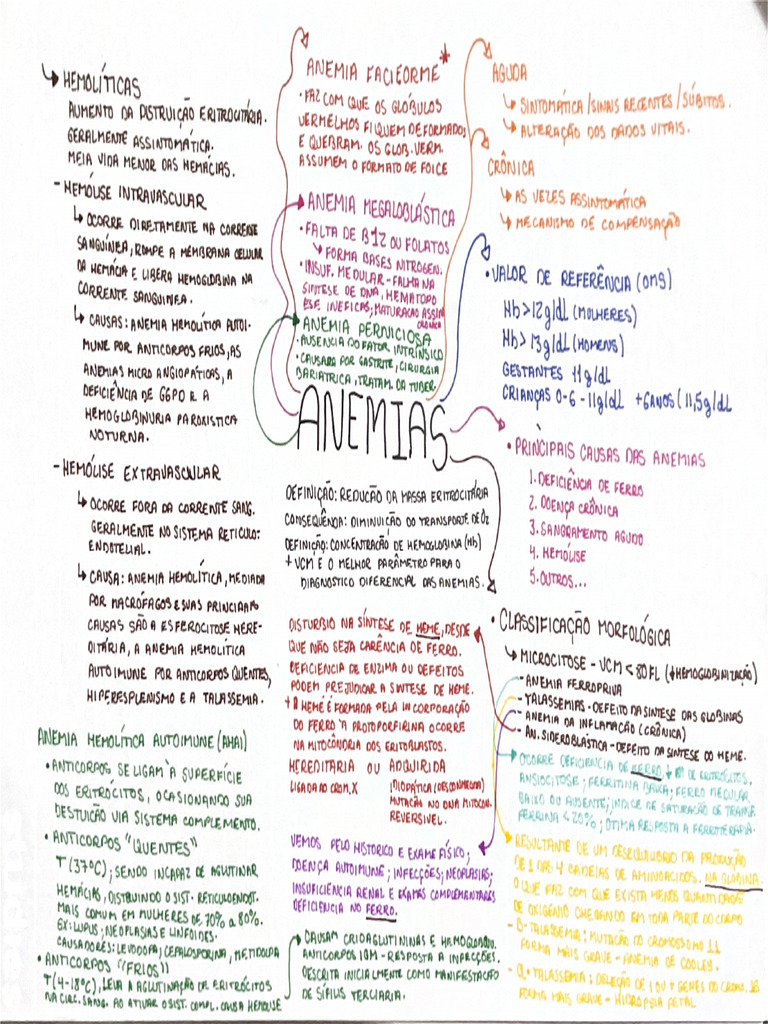 ↳ HEMOLÍTICAS
AUMENTO DA DISTRUIÇÃO ERITROCITÁRIA.
GERALMENTE ASSINTOMÁTICA.
MEIA VIDA MENOR DAS HEMÁCIAS.
- HEMÓLISE INTRAVASCULAR
↳ OCORRE DIRETAMENTE NA CORRENTE
SANGUÍNEA, ROMPE A MEMBRANA CELULAR
DA HEMÁCIA E LIBERA HEMOGLOBINA NA
CORRENTE SANGUINEA.
↳ CAUSAS: ANEMIA HEMOLÍTICA AUTOI-
MUNE POR ANTICORPOS FRIOS, AS
ANEMIAS MICRO ANGIOPATICAS, A
DEFICIÊNCIA DE G6PD E A
HEMOGLOBINURIA PAROXISTICA
NOTURNA.
- HEMÓLISE EXTRAVASCULAR
↳ OCORRE FORA DA CORRENTE SANG.
GERALMENTE NO SISTEMA RETICULO-
ENDOTELIAL.
↳ CAUSA: ANEMIA HEMOLÍTICA, MEDIADA
POR MACRÓFAGOS E SUAS PRINCIPAIS
CAUSAS SÃO A ESFEROCITOSE HERE-
DITÁRIA, A ANEMIA HEMOLÍTICA
AUTOIMUNE POR ANTICORPOS QUENTES,
HIPERESPLENISMO E A TALASSEMIA.
ANEMIA HEMOLÍTICA AUTOIMUNE (AHAI)
• ANTICORPOS SE LIGAM À SUPERFÍCIE
DOS ERITRÓCITOS, OCASIONANDO SUA
DESTUIÇÃO VIA SISTEMA COMPLEMENTO.
• ANTICORPOS "QUENTES"
T (37°C); SENDO INCAPAZ DE AGLUTINAR
HEMÁCIAS, DISTRUINDO O SIST. RETICULOENDOT.
MAIS COMUM EM MULHERES DE 70% A 80%.
EX: LUPUS; NEOPLASIAS E LINFOIDES.
CAUSADORES: LEVODOPA; CEFALOSPORINA, METILDOPA
• ANTICORPOS "FRIOS"
T(4-18°C), LEVA A AGLUTINAÇÃO DE ERITRÓCITOS
NA CIRC. SANG. AO ATIVAR O SIST. COMPL. CAUSA HEMÓLISE
ANEMIA FACIFORME *
• FAZ COM QUE OS GLÓBULOS
VERMELHOS FIQUEM DEFORMADOS
E QUEBRAM. OS GLOB. VERM.
ASSUMEM O FORMATO DE FOICE
ANEMIA MEGALOBLÁSTICA
• FALTA DE B12 OU FOLATOS
↳ FORMA BASES NITROGEN.
• INSUF. MEDULAR - FALHA NA
SINTESE DE DNA, HEMATOPO
ESE INEFICAS; MATURACAO ASSIN
CRONICA
ANEMIA PERNICIOSA
• AUSENCIA DO FATOR INTRÍNSICO
• CAUSADA POR GASTRITE, CIRURGIA
BARIATRICA, TRATAM. DA TUBER.
ANEMIAS
DEFINIÇÃO: REDUÇÃO DA MASSA ERITROCITÁRIA
CONSEQUÊNCIA: DIMINUIÇÃO DO TRANSPORTE DE O2
DEFINIÇÃO: CONCENTRAÇÃO DE HEMOGLOBINA (Hb)
+ VCM É O MELHOR PARÂMETRO PARA O
DIAGNOSTICO DIFERENCIAL DAS ANEMIAS.
DISTURBIO NA SÍNTESE DE HEME, DESDE
QUE NÃO SEJA CARÊNCIA DE FERRO.
DEFICIENCIA DE ENZIMA OU DEFEITOS
PODEM PREJUDICIAR A SINTESE DE HEME.
+ A HEME É FORMADA PELA INCORPORAÇÃO
DO FERRO À PROTOPORFIRINA OCORRE
NA MITOCÔNDRIA DOS ERITOBLASTOS.
HEREDITARIA OU ADQUIRIDA
LIGADA AO CROM. X
IDIOPÁTICA (DESCONHECIDA)
MUTAÇÃO NO DNA MITOCON.
REVERSIVEL.
VEMOS PELO HISTORICO E EXAME FÍSICO;
DOENÇA AUTOIMUNE; INFECÇÕES; NEOPLASIAS;
INSUFICIÊNCIA RENAL E EXAMES COMPLEMENTARES
DEFICIENCIA NO FERRO.
CAUSAM CRIOAGLUTININAS E HAMOGLOBIN.
ANTICORPOS IGM - RESPOSTA A INFECÇÕES.
DESCRITA INICIALMENTE COMO MANIFESTAÇÃO
DE SÍFILIS TERCIARIA.
AGUDA
↳ SINTOMÁTICA / SINAIS RECENTES / SÚBITOS.
↳ ALTERAÇÃO DOS DADOS VITAIS.
CRÔNICA
↳ AS VEZES ASSINTOMÁTICA
↳ MECANISMO DE COMPENSAÇÃO
• VALOR DE REFERÊNCIA (OMS)
Hb > 12g/dl (MULHERES)
Hb > 13g/dL (HOMENS)
GESTANTES 11g/dL
CRIANÇAS 0-6 - 11g/dL +6ANOS (11,5g/dL
• PRINCIPAIS CAUSAS DAS ANEMIAS
1. DEFICIÊNCIA DE FERRO
2. DOENÇA CRÔNICA
3. SANGRAMENTO AGUDO
4. HEMÓLISE
5. OUTROS...
• CLASSIFICAÇÃO MORFOLÓGICA
↳ MICROCITOSE - VCM < 80FL (↓HEMOGLOBINIZAÇÃO)
- ANEMIA FERROPRIVA
- TALASSEMIAS - DEFEITO DA SINTESE DAS GLOBINAS
- ANEMIA DA INFLAMAÇÃO (CRÔNICA)
- AN. SIDEROBLÁSTICA - DEFEITO DA SINTESE DO HEME.
OCORRE DEFICIENCIA DE FERRO + DE ERITRÓCITOS.
ANSIOCITOSE; FERRITINA BAIXA; FERRO MEDULAR
BAIXO OU AUSENTE; INDICE DE SATURAÇÃO DE TRANS
FERRINA < 20%; OTIMA RESPOSTA A FERROTERAPIA.
RESULTANTE DE UM DESEQUILIBRIO DA PRODUÇÃO
DE 1 DAS 4 CADEIAS DE AMINOACIDOS. NA GLOBINA.
O QUE FAZ COM QUE EXISTA MENOS QUANTIDADE
DE OXIGENIO CHEGANDO EM TODA PARTE DO CORPO
B-TALASSEMIA: MUTAÇÃO DO CROMOSSOMO 11
FORMA MAIS GRAVE - ANEMIA DE COOLEY.
α-TALASSEMIA: DELEÇÃO DE 1 OU + GENES DO CROM. 16
FORMA MAIS GRAVE - HIDROPSIA FETAL